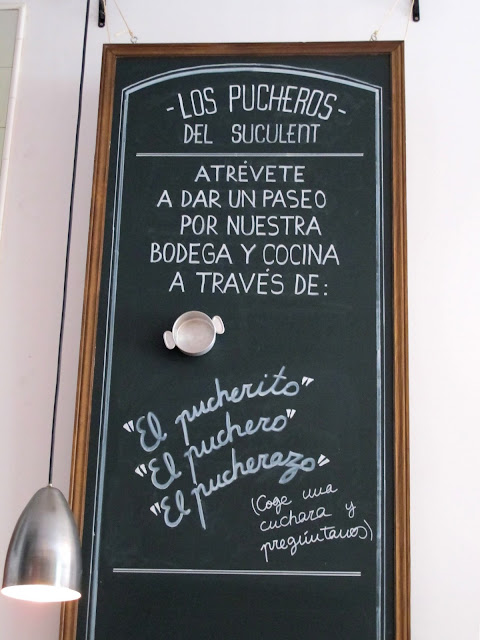 -LOS PUCHEROS-
DEL SUCULENT
ATRÉVETE
A DAR UN PASEO
POR NUESTRA
BODEGA Y COCINA
A TRAVÉS DE:
"El pucherito"
"El puchero"
"El pucherazo"
(Coge una
cuchara y
pregúntanos)